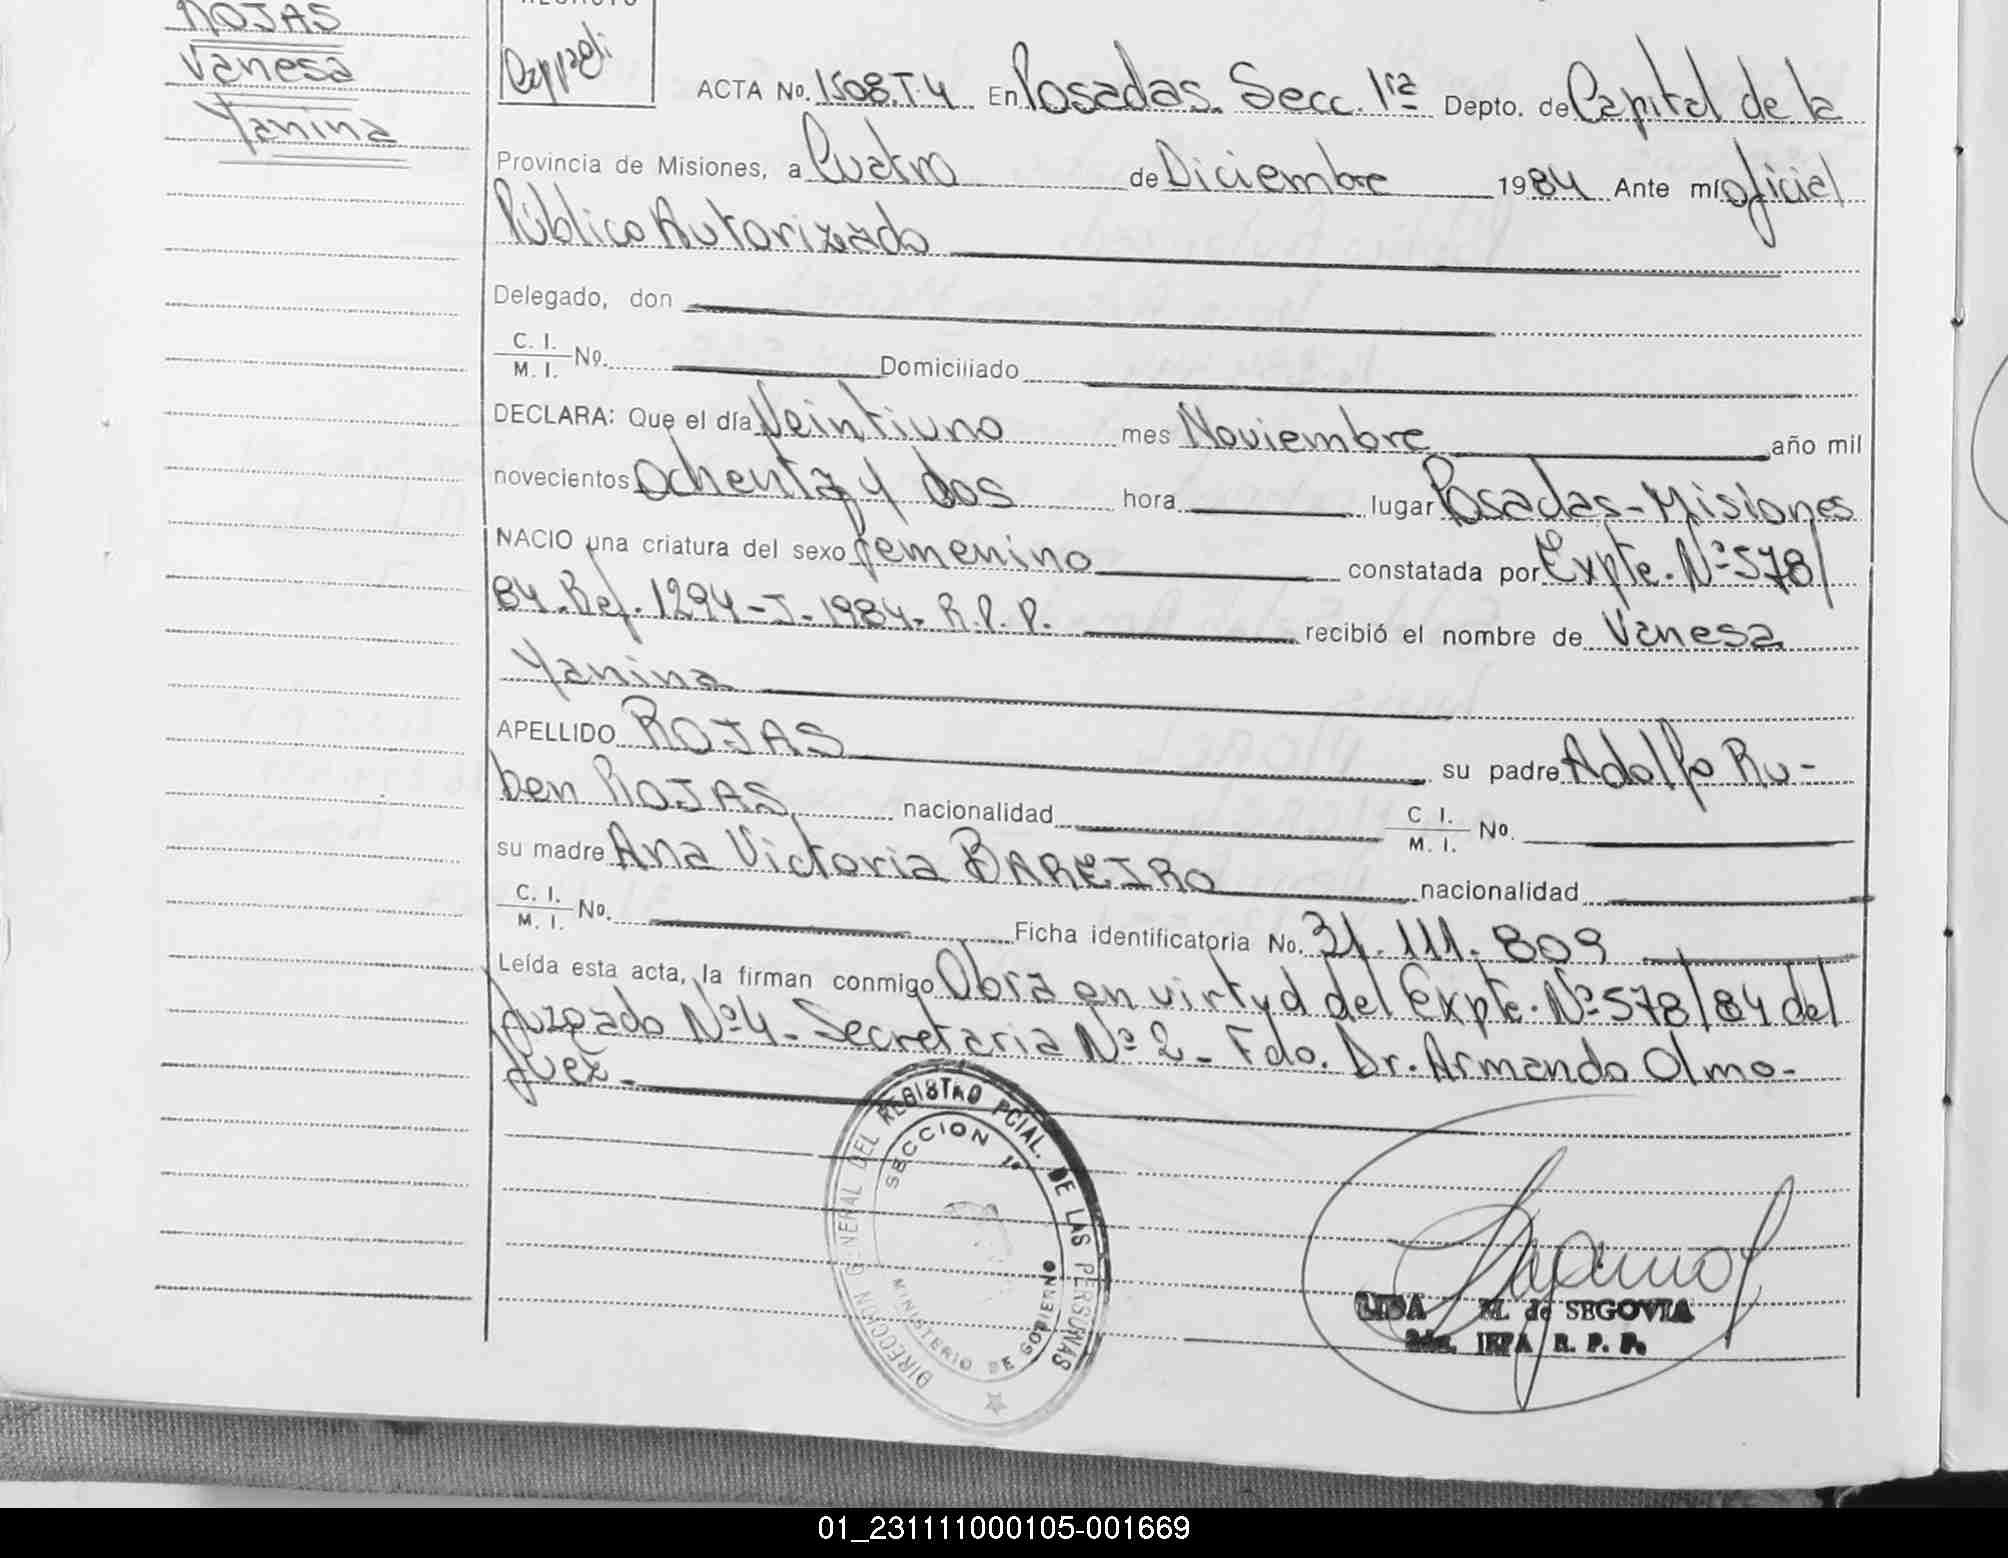 ROJAS
Vanesa
Yanina
ACTA No. 1508.T4 En Posadas. Secc. 1ra Depto. de Capital de la
Provincia de Misiones, a Cuatro de Diciembre 1984 Ante mí oficial
Público Autorizado
Delegado, don
C. I.
M. I. No. Domiciliado
DECLARA: Que el día Veintiuno mes Noviembre año mil
novecientos ochenta y dos hora lugar Posadas-Misiones
NACIO una criatura del sexo femenino constatada por Expte. Nº 578/
84.Ref. 1294-J-1984- R.P.P. recibió el nombre de Vanesa
Yanina
APELLIDO ROJAS su padre Adolfo Ru-
ben ROJAS nacionalidad C. I. M. I. No.
su madre Ana Victoria BAREIRO nacionalidad
C. I.
M. I. No. Ficha identificatoria No. 31.111.809
Leída esta acta, la firman conmigo Obra en virtud del Expte. Nº 578/84 del
Juzgado Nº4-Secretaria Nº 2- Fdo. Dr. Armando Olmo-
Juez-
DIRECCION GENERAL DEL REGISTRO PCIAL. DE LAS PERSONAS
SECCION 1ª
MINISTERIO DE GOBIERNO
M. de SEGOVIA
R. P. P.
01_231111000105-001669